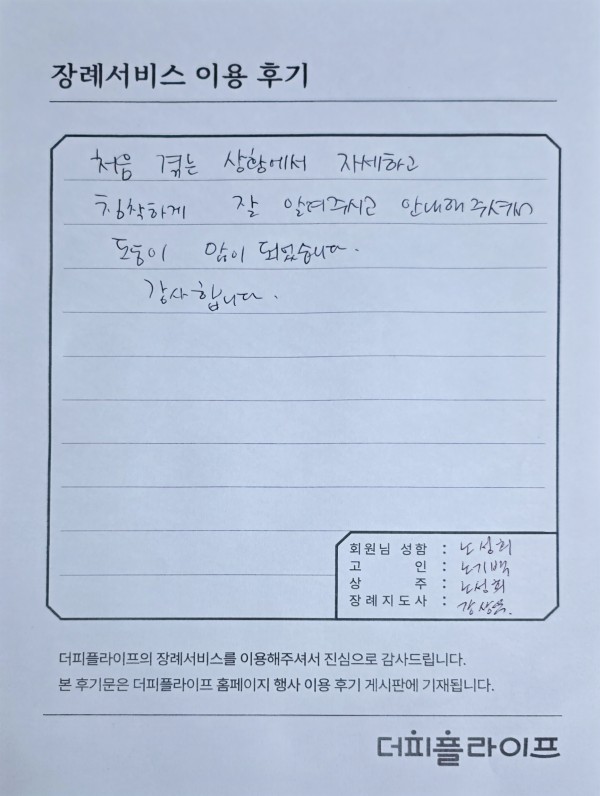 장례서비스 이용 후기
처음 겪는 상황에서 자세하고
침착하게 잘 알려주시고 안내해주셔서
도움이 많이 되었습니다.
감사합니다.
회원님 성함 : 노성희
고 인 : 노기백
상 주 : 노성희
장례지도사 : 강상욱.
더피플라이프의 장례서비스를 이용해주셔서 진심으로 감사드립니다.
본 후기문은 더피플라이프 홈페이지 행사 이용 후기 게시판에 기재됩니다.
더피플라이프